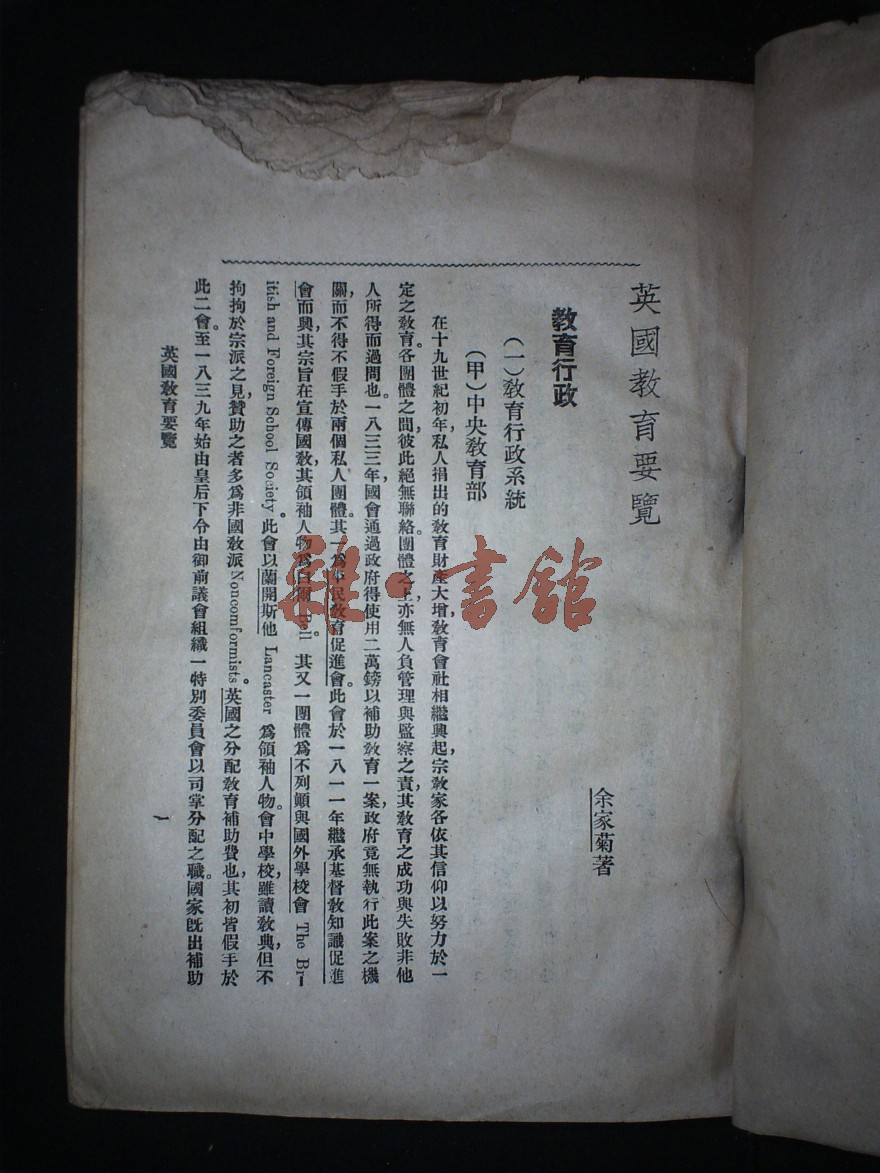 英國教育要覽
余家菊著
教育行政
（一）敎育行政系統
（甲）中央敎育部
在十九世紀初年，私人捐出的敎育財產大增，敎育會社相繼興起，宗敎家各依其信仰以努力於一
定之敎育。各團體之間，彼此絕無聯絡。團體之上，亦無人負管理與監察之責，其敎育之成功與失敗非他
人所得而過問也。一八三三年，國會通過政府得使用二萬鎊以補助敎育一案，政府竟無執行此案之機
關，而不得不假手於兩個私人團體。其一爲平民敎育促進會。此會於一八一一年繼承基督敎知識促進
會而興，其宗旨在宣傳國敎，其領袖人物爲白爾 Bell。其又一團體爲不列顚與國外學校會 The Br-
itish and Foreign School Society。此會以蘭開斯他 Lancaster 爲領袖人物。會中學校，雖讀敎典，但不
拘拘於宗派之見，贊助之者多爲非國敎派 Noncomformists。英國之分配敎育補助費也，其初皆假手於
此二會。至一八三九年始由皇后下令由御前議會組織一特別委員會以司掌分配之職。國家旣出補助
英國敎育要覽
一
雜·書館